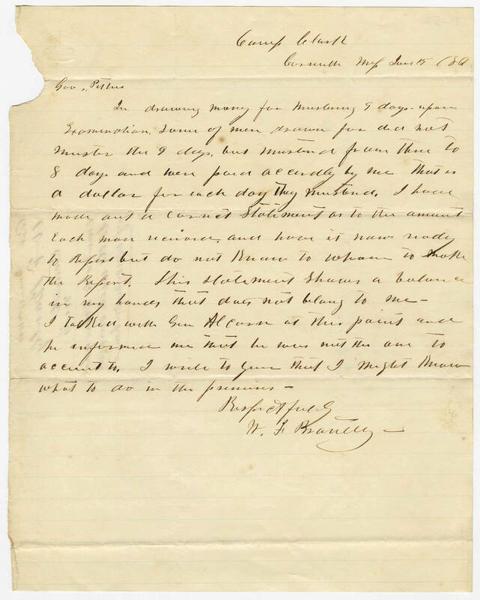 Camp Clark
Corinth Miss June 15 1861
Gov. Pettus
In drawing money for Mustering 9 days upon
Examination some of men drawn for did not
muster the 9 days, but mustered from three to
8 days and were paid accordly by me that is
a dollar for each day they mustered, I have
made out a correct statement as to the amount
Each man received, and have it now ready
to Report but do not Know to whom to make
the Report. This statement Shows a balance
in my hands that does not belong to me –
I talked with Gen Alcorn at this point and
he informed me that he was not the one to
account to. I write to you that I Might Know
what to do in the premises –
Respectfully
W. F. Brantley